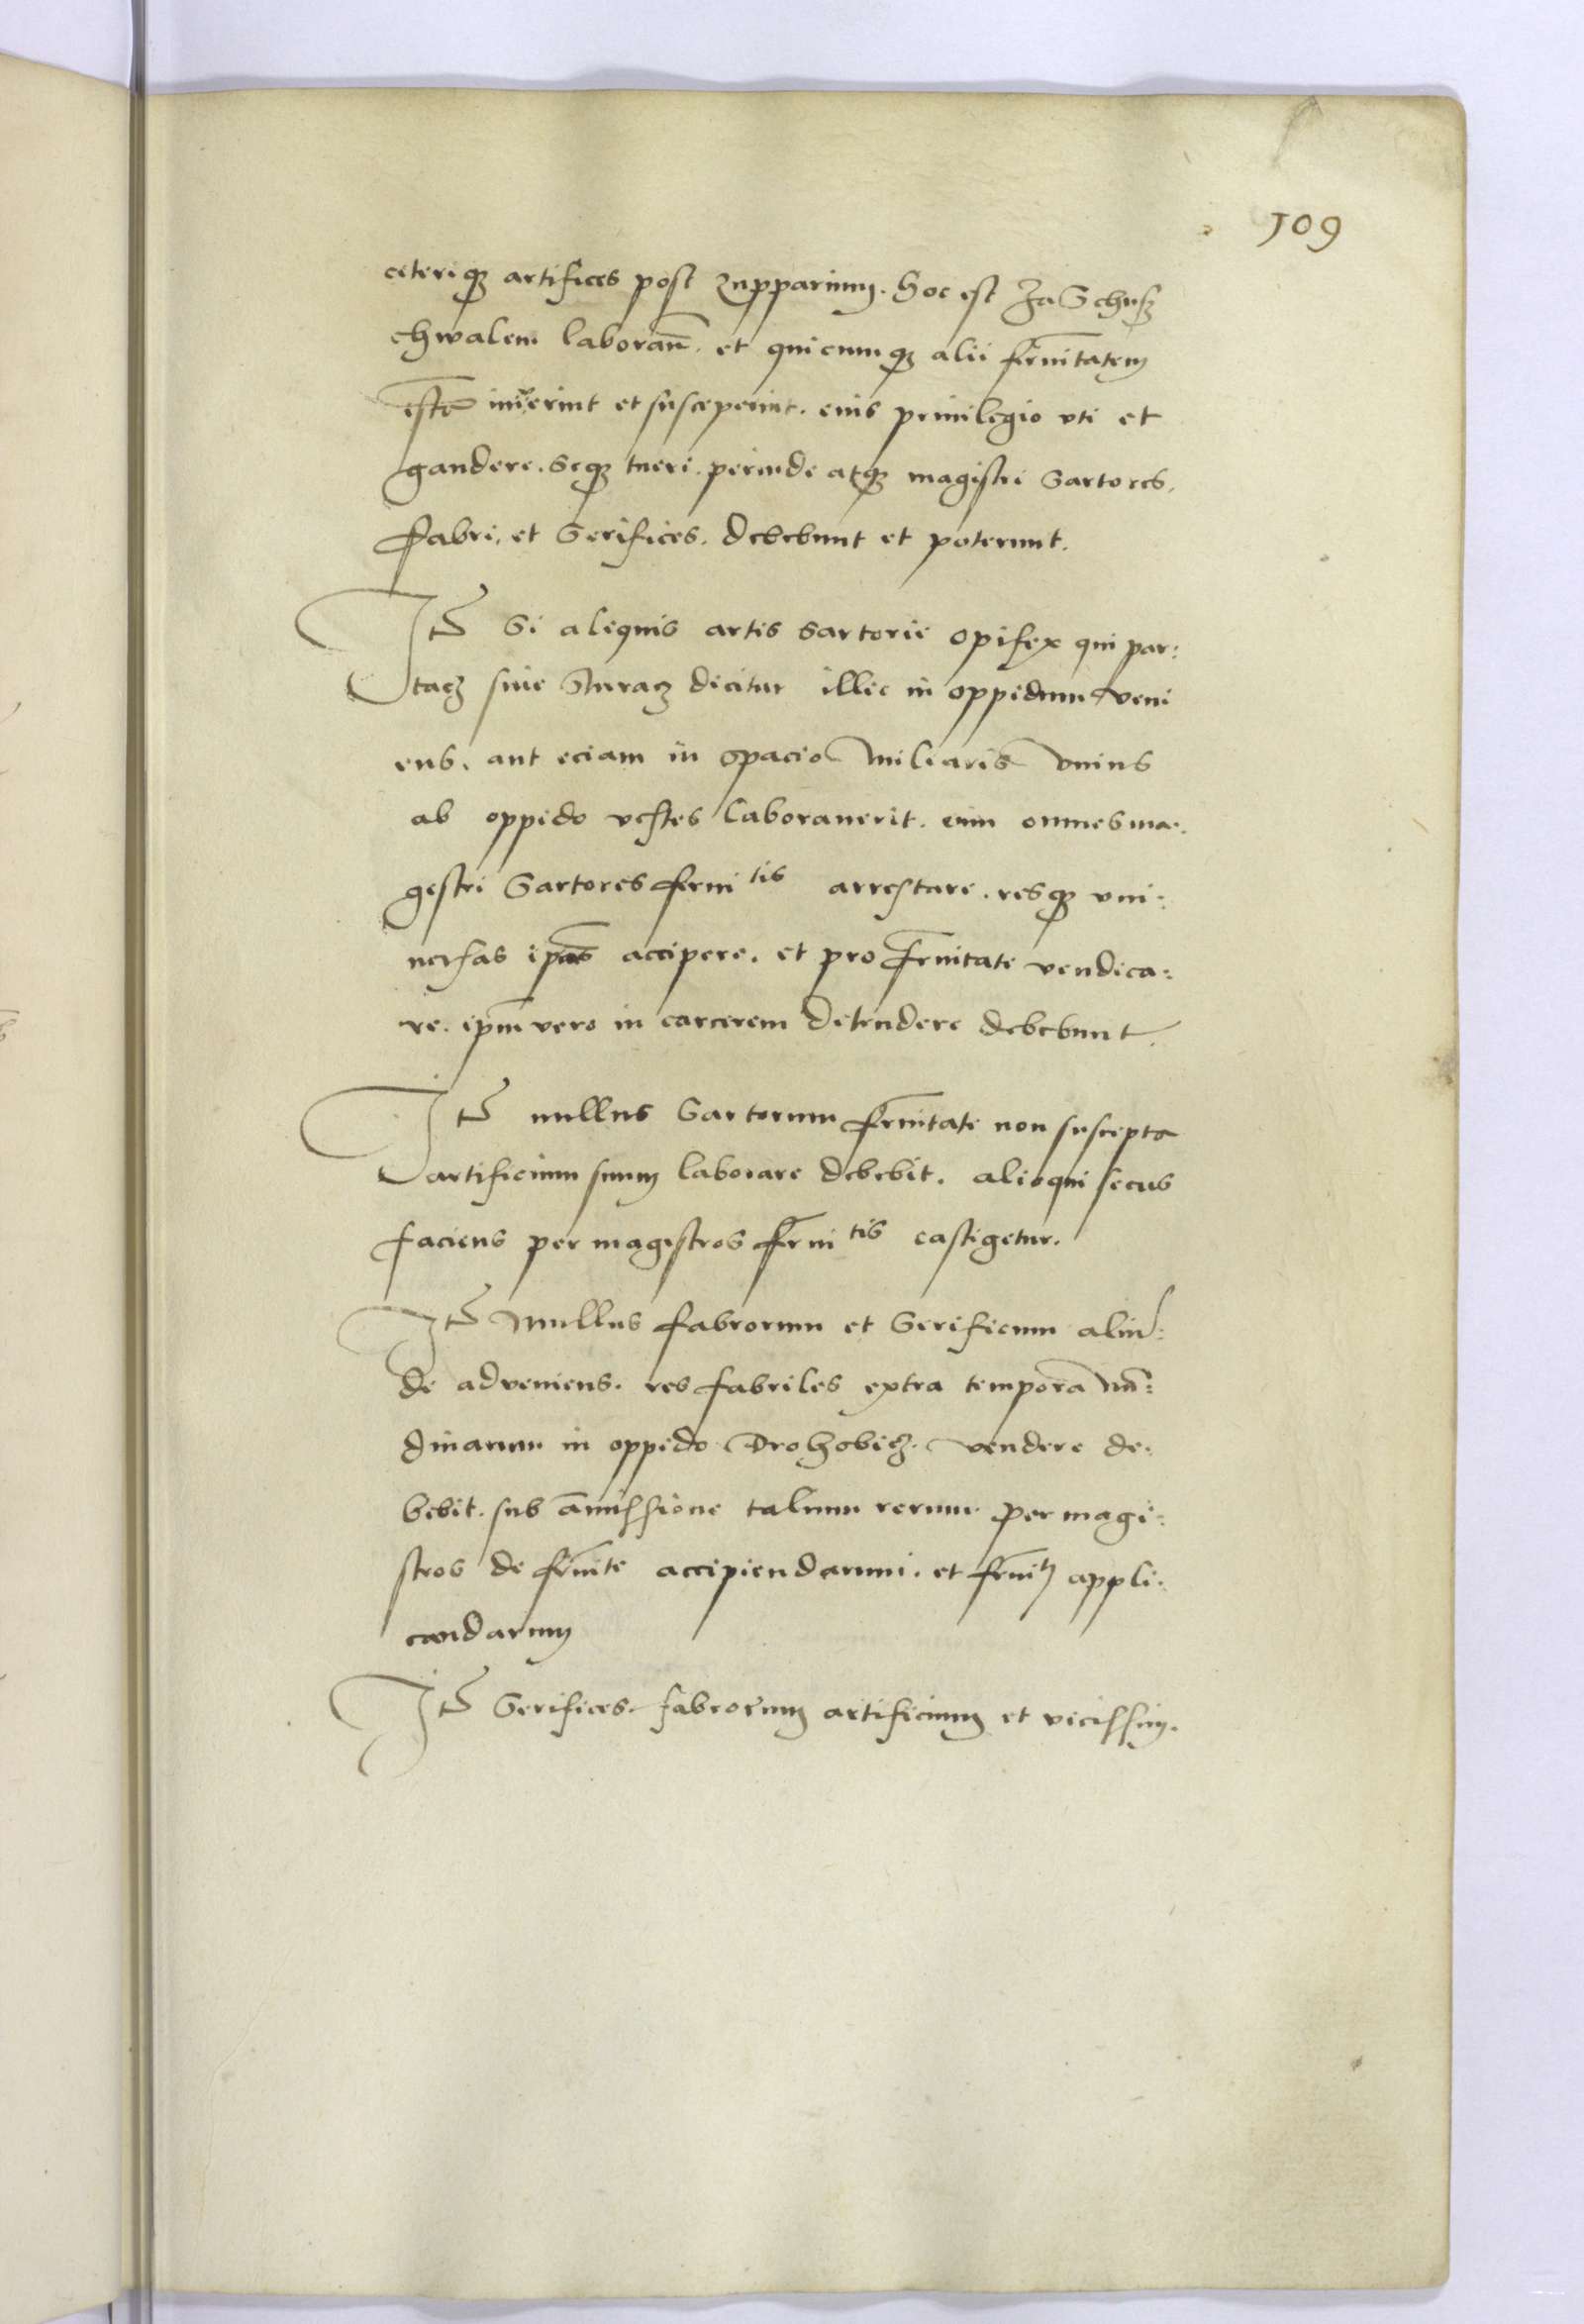 109
ceteriqz artifices post zupparium. Hoc est Za Schuß
chwalem laborań. et quicumqz alii frnitatem
istā inierint et susceperint. eius priuilegio vti et
gaudere. seqz tueri. perinde atqz magistri Sartores.
fabri, et Serifices. debebunt et poterunt.
Itē Si aliquis artis Sartorie opifex qui par:
tacz siue Sturacz dicitur illic in oppidum veni
ens. aut eciam in spacio miliaris vnius
ab oppido vestes laborauerit. eum omnes ma:
gistri Sartores frnitis arrestare. resqz vni:
uersas ipās accipere. et pro frnitate vendica:
re. ipm̄ vero in carcerem detrudere debebunt.
Itē nullus Sartorum frnitate non suscepta
artificium suum laborare debebit. alioqui secus
faciens per magistros frnitis castigetur.
Itē Nullus fabrorum et Serificum aliu͂:
de adveniens. res fabriles extra tempora nū:
dinarum in oppido Drohobicz. vendere de:
bebit. sub amissione talium rerum per magi:
stros de frnite accipiendarum. et frnitj appli:
candarum
Itē Serifices. fabrorum artificium et vicissim.